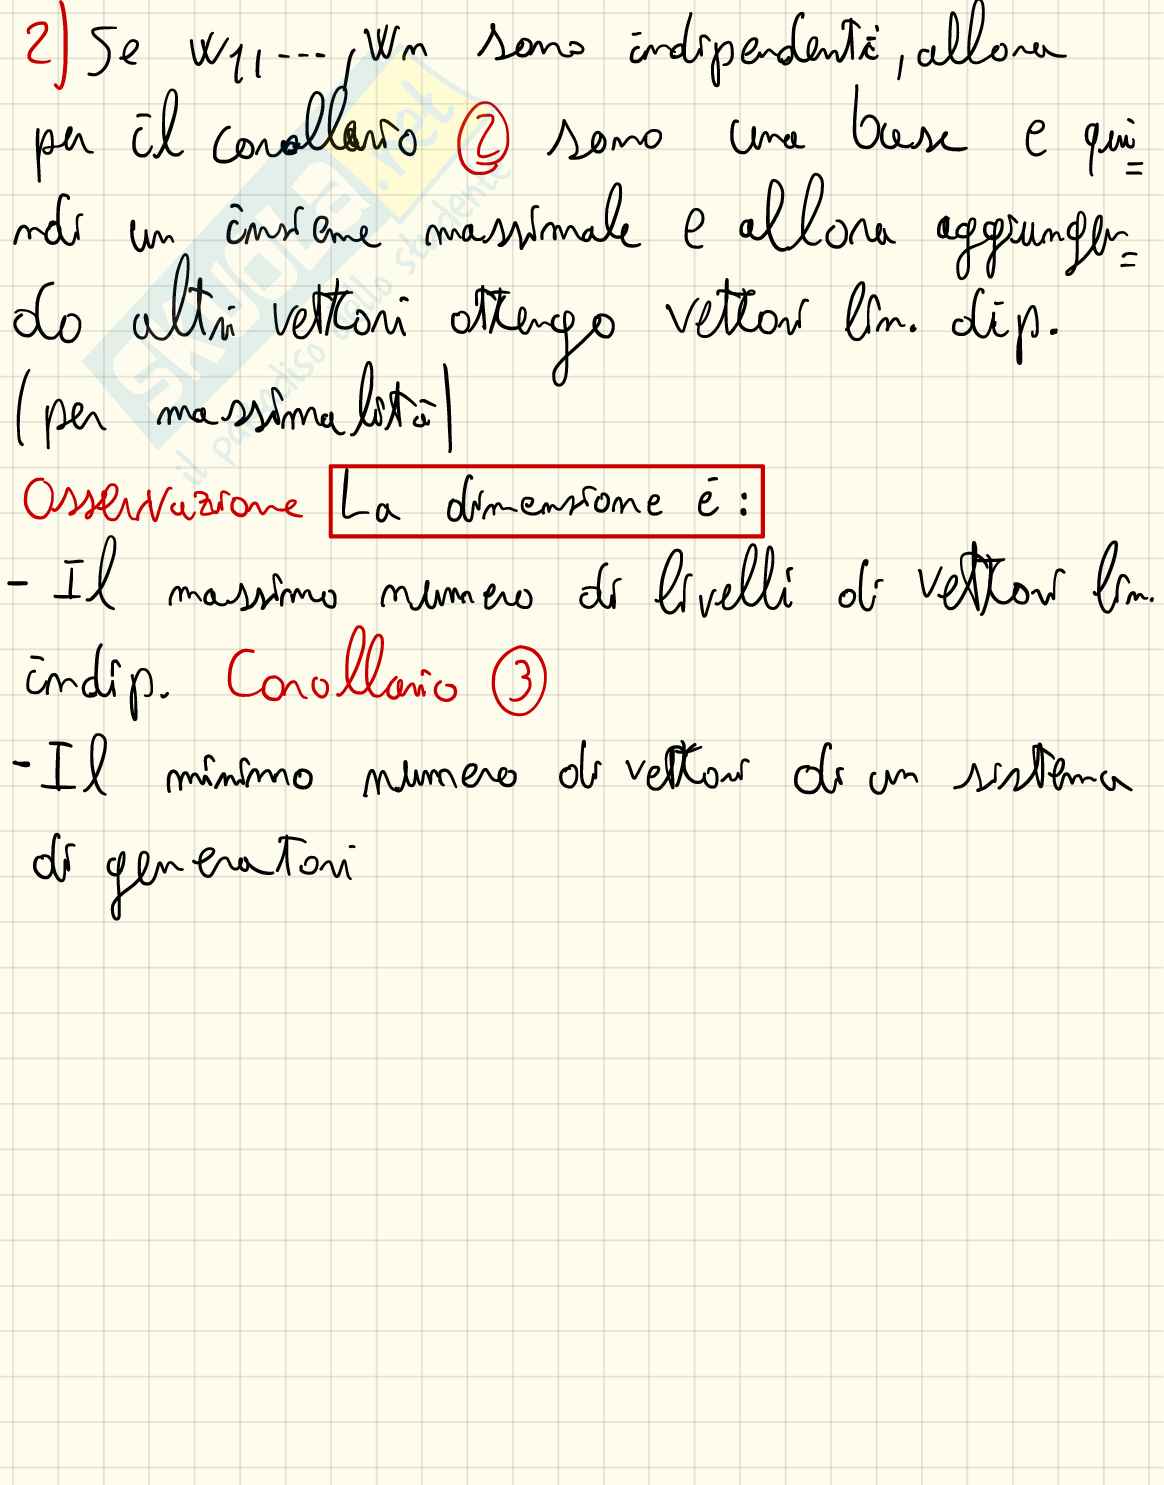 2) Se w1, ..., wn sono indipendenti, allora
per il corollario ② sono una base e qui=
ndi un insieme massimale e allora aggiungen=
do altri vettori ottengo vettori lin. dip.
(per massimalità)
Osservazione La dimensione é:
- Il massimo numero di livelli di vettori lin.
indip. Corollario ③
- Il minimo numero di vettori di un sistema
di generatori
SKUOLA.net
il paradiso dello studente